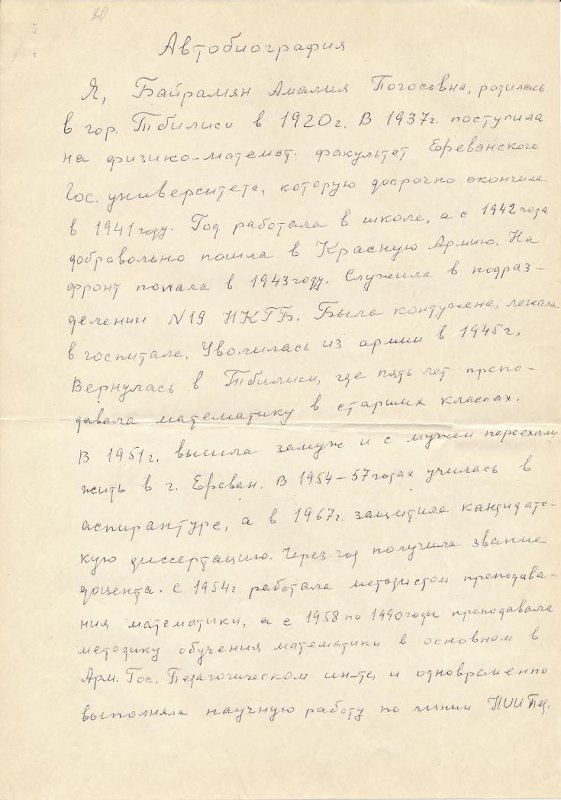 20
Автобиография
Я, Байрамян Амалия Погосовна, родилась
в гор. Тбилиси в 1920г. В 1937г. поступила
на физико-математ. факультет Ереванского
Гос. университета, которую досрочно окончила
в 1941 году. Год работала в школе, а с 1942 года
добровольно пошла в Красную Армию. На
фронт попала в 1943 году. Служила в подраз-
делении N19 НКГБ. Была контужена, лежала
в госпитале. Уволилась из армии в 1945г.
Вернулась в Тбилиси, где пять лет препо-
давала математику в старших классах.
В 1951г. вышла замуж и с мужем переехали
жить в г. Ереван. В 1954-57 годах училась в
аспирантуре, а в 1967г. защитила кандидатс-
кую диссертацию. Через год получила звание
доцента. С 1954г. работала методистом преподава-
ния математики, а с 1958 по 1990 годы преподавала
методику обучения математики в основном в
Арм. Гос. Педагогическом ин-те, и одновременно
выполняла научную работу по линии НИИ Пед.